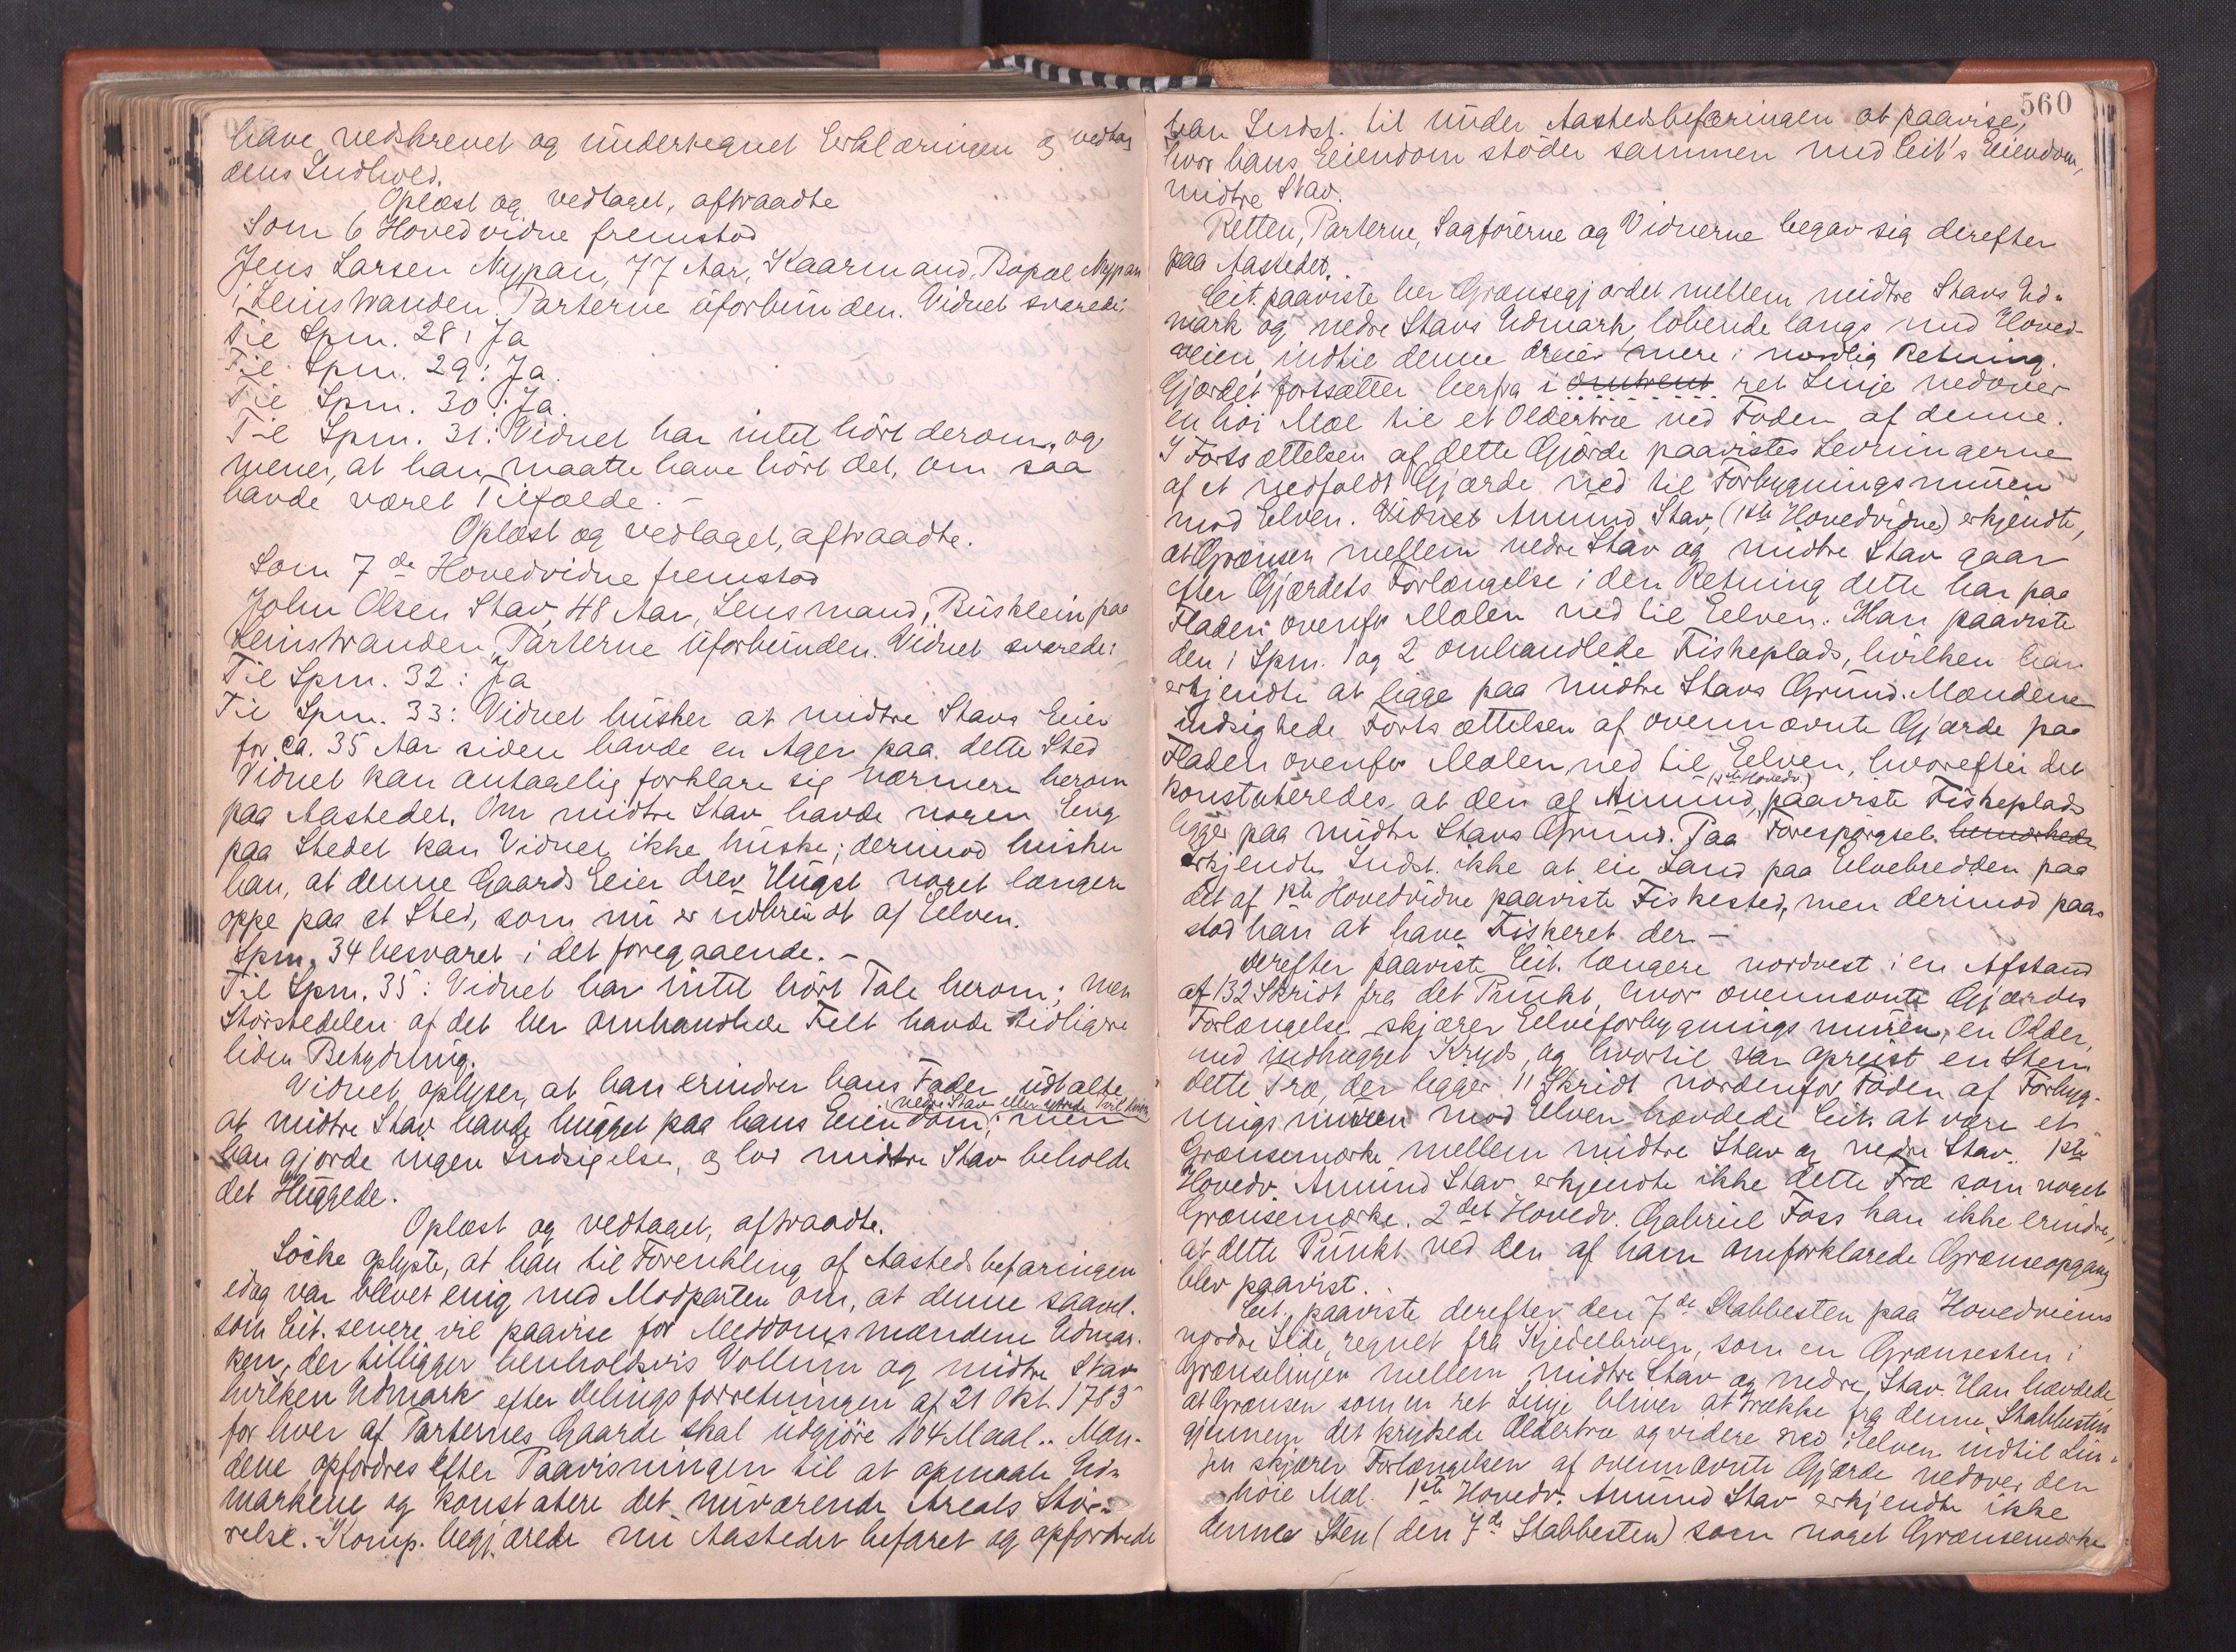 have nedskrevet og undertegnet Erklæringen og vedtog
dens Indhold.
Oplæst og vedtaget, aftraadte
Som 6 Hovedvidne fremstod
Jens Larsen Nypan, 77 Aar, Kaarmand, Bopæl Nypan
i Leinstranden, Parterne uforbunden. Vidnet svarede:
Til Spm. 28: Ja
Til Spm. 29: Ja.
Til Spm. 30: Ja.
Til Spm. 31: Vidnet har intet hört derom, og
mener, at han maatte have hört det, om saa
havde været Tilfælde. –
Oplæst og vedtaget, aftraadte.
Som 7de Hovedvidne fremstod
John Olsen Stav, 48 Aar, Lensmand, Busklein paa
Leinstranden, Parterne uforbunden. Vidnet svarede:
Til Spm. 32: Ja
Til Spm. 33: Vidnet husker at midtre Stavs Eier
for ca. 35 Aar siden havde en Ager paa dette Sted
Vidnet kan antagelig forklare sig nærmere herom
paa Aastedet. Om midtre Stav havde nogen Eng
paa Stedet kan Vidnet ikke huske; derimod husker
han, at denne Gaards Eier drev Hugst noget længere
oppe paa et Sted, som nu er udbrudt af Elven.
Spm. 34 besvaret i det foregaaende. –
Til Spm. 35: Vidnet har intet hört Tale herom; men
Störstedelen af det her omhandlede Felt havde tidligere
liden Betydning.
Vidnet oplyser, at han erindrer hans Fader udtalte
nedre Stav eller
at midtre Stav havde hugget paa hans Eiendom; men
han gjorde ingen Indsigelse, og lod midtre Stav beholde
det Huggede.
Oplæst og vedtaget, aftraadte.
Löcke oplyste, at han til Forenkling af Aastedsbefaringen
idag var blevet enig med Modparten om, at denne saavel
som Cit. senere vil paavise for Meddomsmændene Udmar-
ken, der tilligger henholdsvis Vollum og midtre Stav
hvilken Udmark efter Delingsforretningen af 21 Okt. 1783
for hver af Parternes Gaarde skal udgjöre 104 Maal. Mæn-
dene opfordres efter Paavisningen til at opmaale Ud-
markene og konstatere det nuværende Areals Stör-
relse. – Komp. begjærede nu Aastedet befaret og opfordrede
560
han Indst. til under Aastedsbefaringen at paavise,
hvor hans Eiendom stöder sammen med Cit's Eiendom,
midtre Stav.
Retten, Parterne, Sagförerne og Vidnerne begav sig derefter
paa Aastedet.
Cit. paaviste her Grænsegjærdet mellem midtre Stavs Ud-
mark og nedre Stavs Udmark, löbende langs med Hoved-
veien, indtil denne dreier mere i nordlig Retning.
Gjærdet fortsætter herfra i omtrent ret Linje nedover
en höi Mæl til et Oldertræ ved Foden af denne.
I Fortsættelsen af dette Gjærde paavistes Levningerne
af et nedfaldt Gjærde ned til Forbygningsmuren
mod Elven. Vidnet Amund Stav, (1ste Hovedvidne) erkjendte,
at Grænsen mellem nedre Stav og midtre Stav gaar
efter Gjærdets Forlængelse i den Retning dette har paa
Fladen ovenfor Mælen ned til Eelven. Han paaviste
den i Spm. 1 og 2 omhandlede Fiskeplads, hvilken han
erkjendte at ligge paa midtre Stavs Grund. Mændene
indsigtede Fortsættelsen af ovennævnte Gjærde paa
Fladen ovenfor Mælen, ned til Eelven, hvorefter det
(1ste Hovedv.)
konstateredes, at den af Amund, paaviste Fiskeplads
ligger paa midtre Stavs Grund. Paa Forespörgsel bemærkede
erkjendte Indst. ikke at eie Land paa Elvebredden paa
det af 1ste Hovedvidne paaviste Fiskested, men derimod paa-
stod han at have Fiskeret der. –
Derefter paaviste Cit. længere nordvest i en Afstand
af 132 Skridt fra det Punkt, hvor ovennævnte Gjærdes
Forlængelse skjærer Elveforbygningsmuren, en Older,
med indhugget Kryds, og hvortil var opreist en Sten
dette Træ, der ligger 11 Skridt nordenfor Foden af Forbyg-
ningsmuren mod Elven hævdede Cit. at være et
Grænsemærke mellem midtre Stav og nedre Stav. 1ste
Hovedv. Amund Stav erkjendte ikke dette Træ som noget
Grænsemærke. 2det Hovedv. Gabriel Foss kan ikke erindre,
at dette Punkt ved den af ham omforklarede Grænseopgang
blev paavist.
Cit. paaviste derefter den 7de Stabbesten paa Hovedveiens
nordre Side, regnet fra Kjedelbroen, som en Grænsesten i
Grænselinjen mellem midtre Stav og nedre Stav. Han hævdede
at Grænsen som en ret Linje bliver at trække fra denne Stabbesten
gjennem det krydsede Oldertræ og videre ned i Elven indtil Lin-
jen skjærer Forlængelsen af ovennævnte Gjærde nedover den
höie Mæl. 1ste Hovedv. Amund Stav erkjendte ikke
denne Sten (den 7de Stabbesten) som noget Grænsemærke